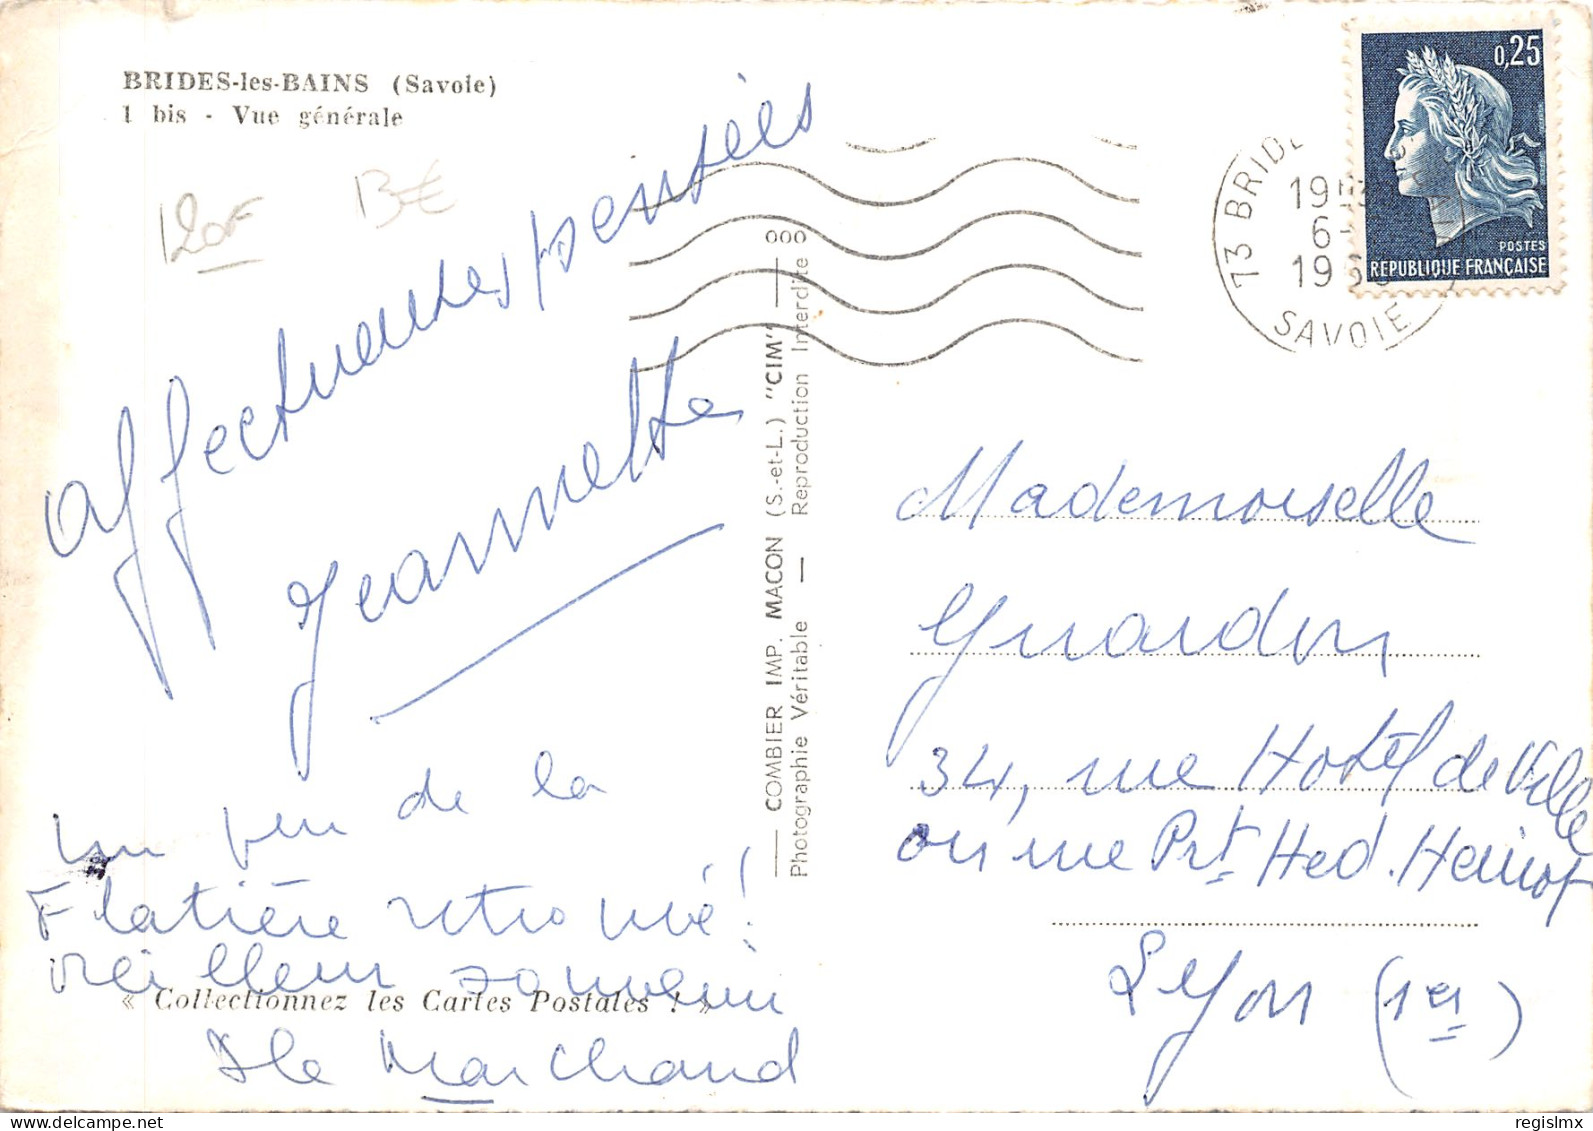 BRIDES-les-BAINS (Savoie)
1 bis - Vue générale
120F 13€
affectueuses pensées
Jeannette
un peu de la
Flatière retrouvé!
meilleur souvenir
Mlle Marchand
« Collectionnez les Cartes Postales ! »
COMBIER IMP. MACON (S.-et-L.) "CIM"
Photographie Véritable — Reproduction Interdite
000
0,25
POSTES
REPUBLIQUE FRANÇAISE
73 BRIDE
19
6-
19
SAVOIE
Mademoiselle
Guardon
34, rue Hotel de Ville
ou rue Prt Hed. Herriot
Lyon (1er)
regislmx